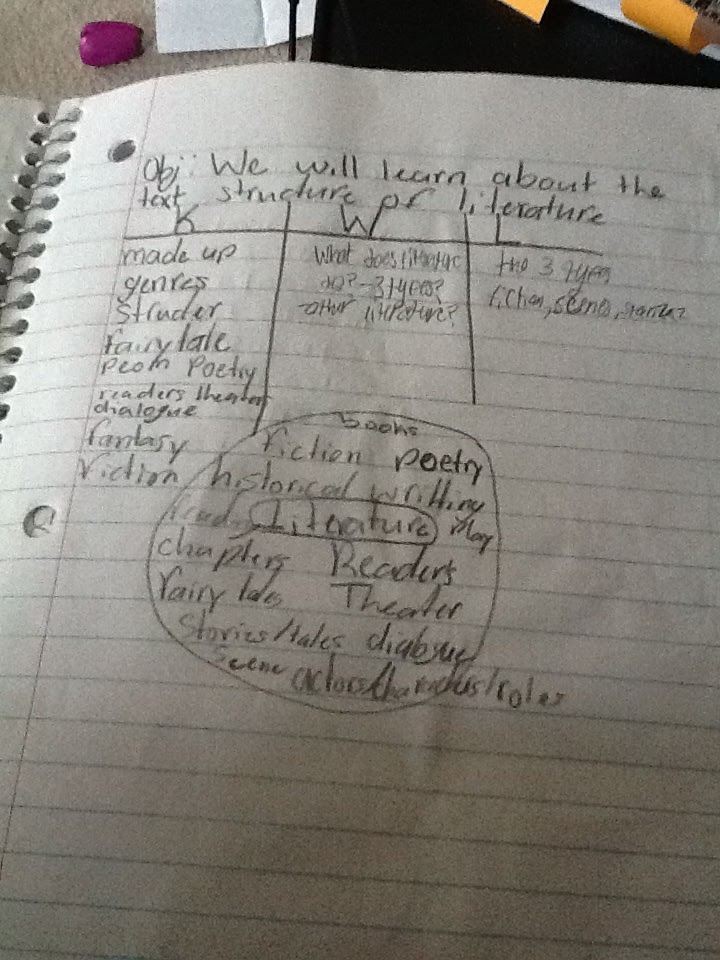 Obj: We will learn about the
text structure of literature
K W L
made up
genres
Strucler
fairytale
peom Poetry
readers theater
dialogue
fantasy
Fiction
What does literature
do? - 3 types?
other literature?
the 3 types
books
fiction Poetry
historical writting
Literature play
chapters Readers
fairy tales Theater
Stories/tales dialogue
Scene actors/characters/roles